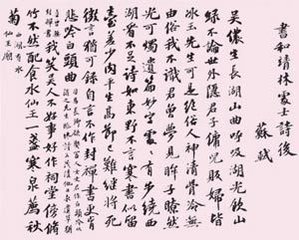 書和靖林處士詩後
蘇軾
吳儂生長湖山曲呼吸湖光飲山
綠不論世外隱君子傭兒販婦皆
冰玉先生可是絕俗人神清骨冷無
由俗我不識君曾夢見眸子瞭然
光可燭遺篇妙字處〻有步繞西
湖看不足詩如東野不言寒書似留
臺差少肉平生高節已難繼將死
微言猶可錄自言不作封禪書更肯
悲吟白頭曲
我笑吳人不好事好作祠堂傍脩
竹不然配食水仙王一盞寒泉薦秋
菊 湖有水仙王廟